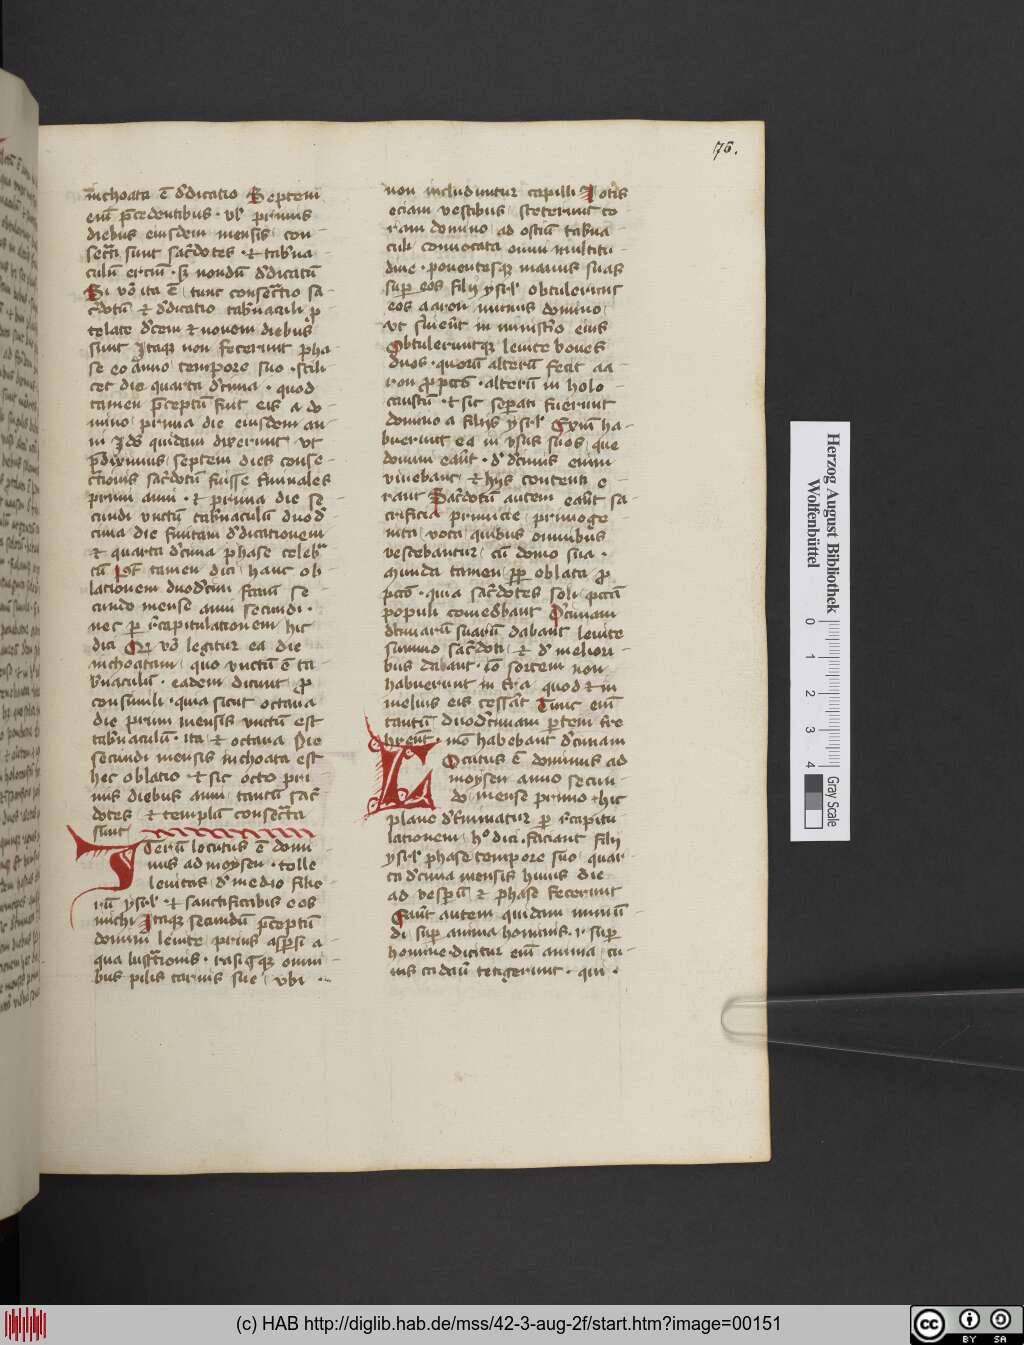 76.
inchoata ē d̓dicatio Septem
eni̅ p̄cedentibus · vl̓ primis
diebus eiusdem mensis con-
secr̄ti sunt sac̓dotes · et tab̓na-
culū erctū · s; nondū d̓dicatū
Si vō ita ē tunc consecr̄tio sa-
c̓dotū et d̓dicatio tab̓naculi p̱
telate d̓cem et novem diebus
sunt Itaq; non fecerunt pha-
se eo anno tempore suo · scili-
cet die quarta d̓cima · quod
tamen p̄ceptū fuit eis a do-
mino prima die eiusdem an-
ni Ido̅ quidam dixerunt vt
p̄diximus septem dies conse-
cr̄tionis sac̓dotū fuisse finiales
primi anni · et prima die se-
cundi vnctū tab̓naculū duod̓
cima die finitam d̓dicationem
et quarta d̓cima phase celebr̄-
tū pōt tamen dici hanc ob-
lationem duod̓cim factū se-
cundo mense anni secundi ·
nec p̱ r̓capitulationem hic
dici Qr̄ vō legitur ea die
inchoatam quo vnctū ē ta-
b̓naculū · eadem dicunt p̱
consimili · quia sicut octava
die primi mensis vnctū est
tab̓naculū · ita et octava die
secundi mensis inchoata est
hec oblatio et sic octo pri-
mis diebus anni tantū sac̓-
dotes et templū consecr̄ta
sunt
Iterū locutus ē domi-
nus ad moysen · tolle
levitas d̓ medio filio-
rū ysrl̓ et sanctificabis eos
michi Itaq; secundū p̄ceptū
domini levite prius aspsi a-
qua lustr̄tionis · rasisq; omni-
bus pilis carnis sue vbi
non includuntur capilli Lotis
eciam vestibus steterunt co-
ram domino ad ostiū tab̓na-
culi convocata omni multitu-
dine · ponentesq; manus suas
sup̱ eos filij ysrl̓ obtulerunt
eos aaron munus domino
vt s̓vient in minist̓io eius
Obtuleruntq; levite boves
duos · quorū alterū fecit aa-
ron p̱ pctō · alterū in holo-
caustū · et sic sep̱ati fuerunt
domino a filijs ysrl̓ Exm̄ ha-
buerunt ea in vsus suos que
domini eānt · d̓ d̓cimis enim
vivebant et hijs contenti e-
rant Sac̓dotū autem eānt sa-
crificia primicie primoge-
nita vota quibus omnibus
vescebantur cū domo sua ·
Munda tamen p̱p̱ oblata p̱
pctō · quia sac̓dotes soli pctū
populi comed̓bant D̓cimam
d̓cimarū suarū dabant levite
summo sac̓doti et d̓ meliori-
bus dabant · Eo sortem non
habuerunt in t̓ra quod et in
melius eis cessāt Tunc eni̅
tantū duod̓cimam p̱tem t̓re
hr̄ent · mō habebant d̓cimam
Locutus ē dominus ad
moysen anno secun-
do mense primo · hic
plane d̓t̓minatur p̱ r̓capitu-
lationem h° dici · faciant filij
ysrl̓ phase tempore suo quar-
ta d̓cima mensis huius die
ad vesp̱ū et phase fecerunt
Eānt autem quidam immū-
di sup̱ anima hominis · i · sup̱
homine · dicitur eni̅ anima cu-
ius cadau̓ tetigerunt · qui ·
Herzog August Bibliothek
Wolfenbüttel
0 1 2 3 4
Gray Scale
(c) HAB http://diglib.hab.de/mss/42-3-aug-2f/start.htm?image=00151
cc BY SA